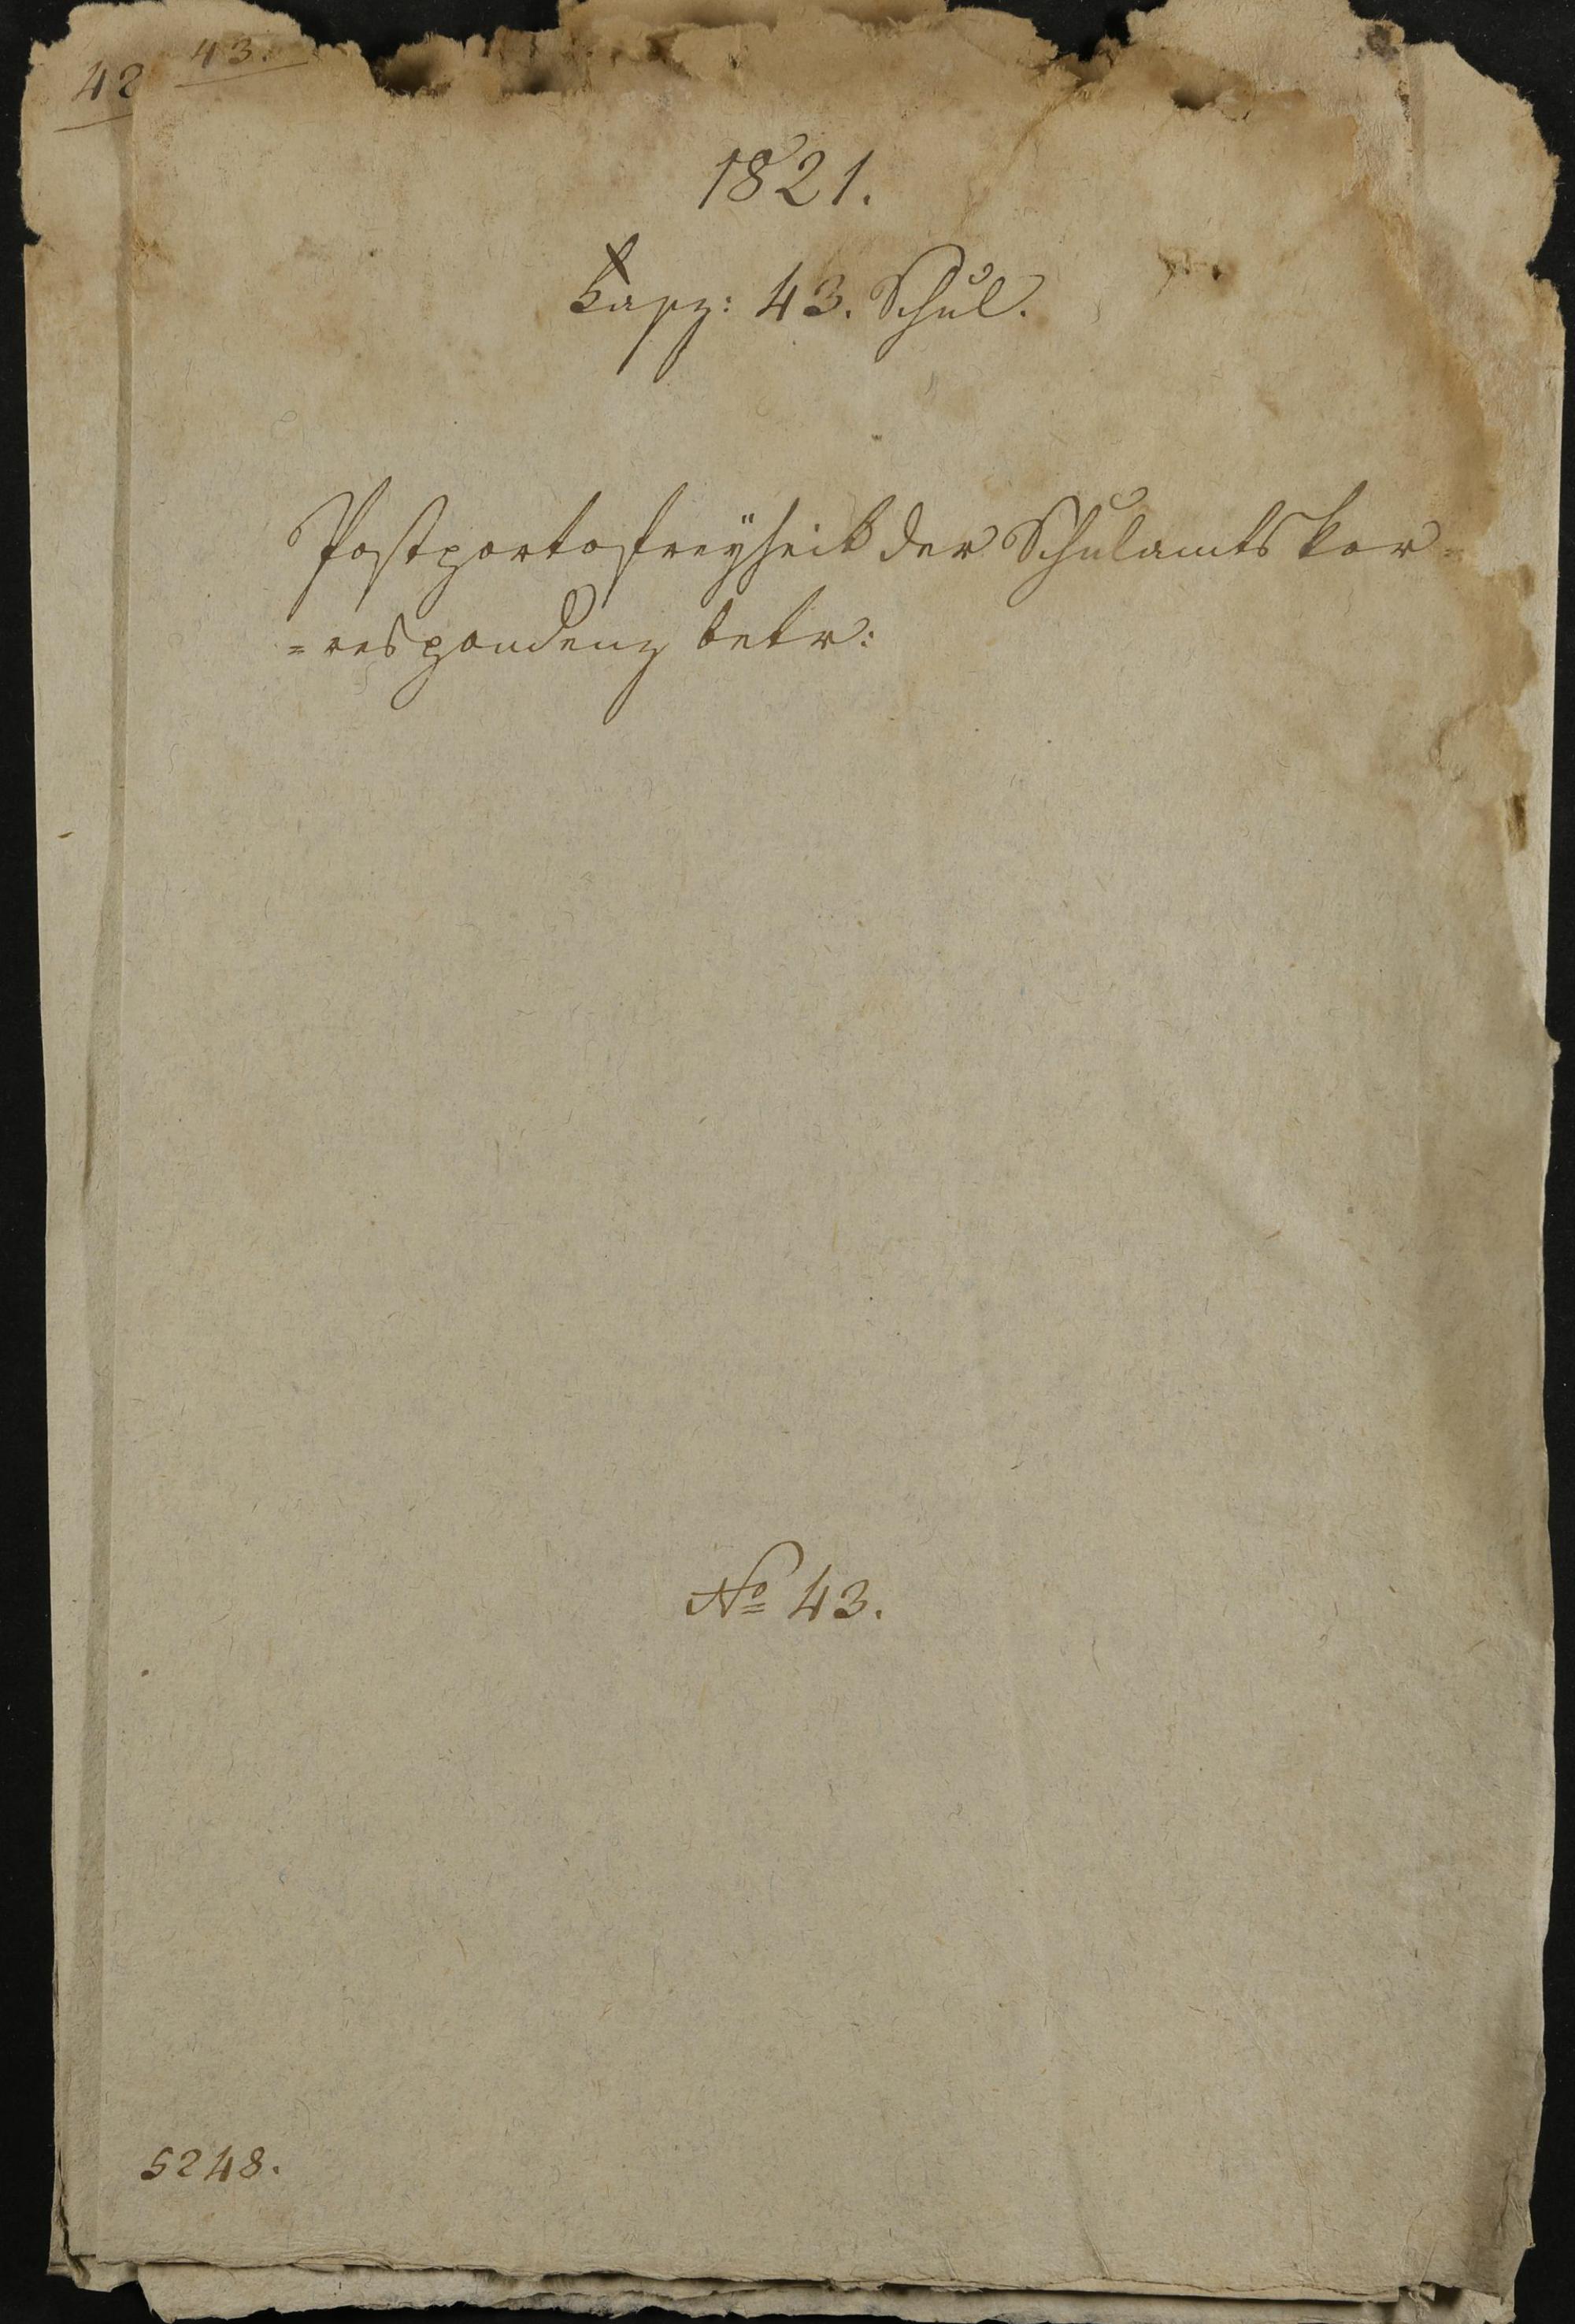 42
43.
1821.
Fasz: 43. Schul.
Postportofreÿheit der Schulamtskor=
=respondenz betr:
No 43.
5248.